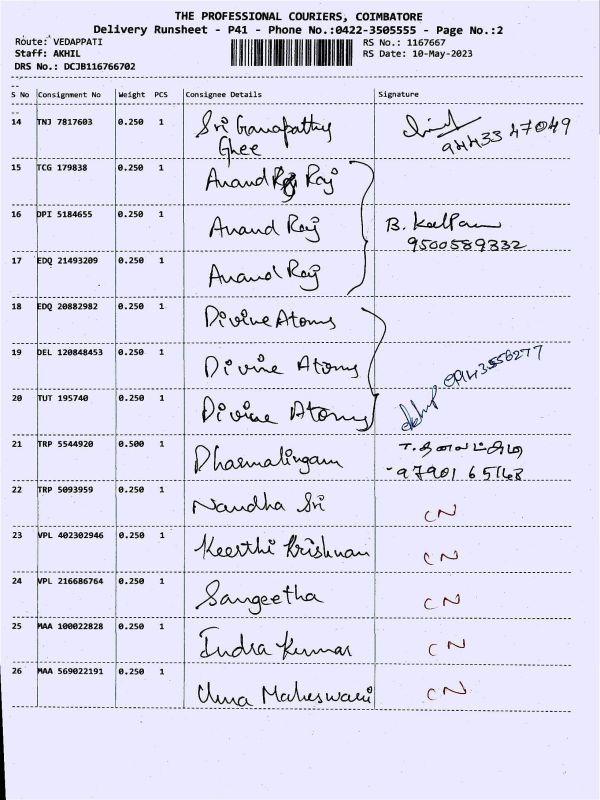 THE PROFESSIONAL COURIERS, COIMBATORE
Delivery Runsheet - P41 - Phone No.:0422-3505555 - Page No.:2
Route: VEDAPPATI RS No.: 1167667
Staff: AKHIL RS Date: 10-May-2023
DRS No.: DCJB116766702
S No Consignment No Weight PCS Consignee Details Signature
14 TNJ 7817603 0.250 1 Sri Ganapathy
Ghee 94433 47049
15 TCG 179838 0.250 1 Anand Raj
16 DPI 5184655 0.250 1 Anand Raj B. Kalpana
9500589332
17 EDQ 21493209 0.250 1 Anand Raj
18 EDQ 20882982 0.250 1 Divine Atoms
19 DEL 120848453 0.250 1 Divine Atoms
20 TUT 195740 0.250 1 Divine Atoms
21 TRP 5544920 0.500 1 Dharmalingam
22 TRP 5093959 0.250 1 Nandha Sri CN
23 VPL 402302946 0.250 1 Keerthi Krishnan CN
24 VPL 216686764 0.250 1 Sangeetha CN
25 MAA 100022828 0.250 1 Indra Kumar CN
26 MAA 569022191 0.250 1 Uma Maheswari CN